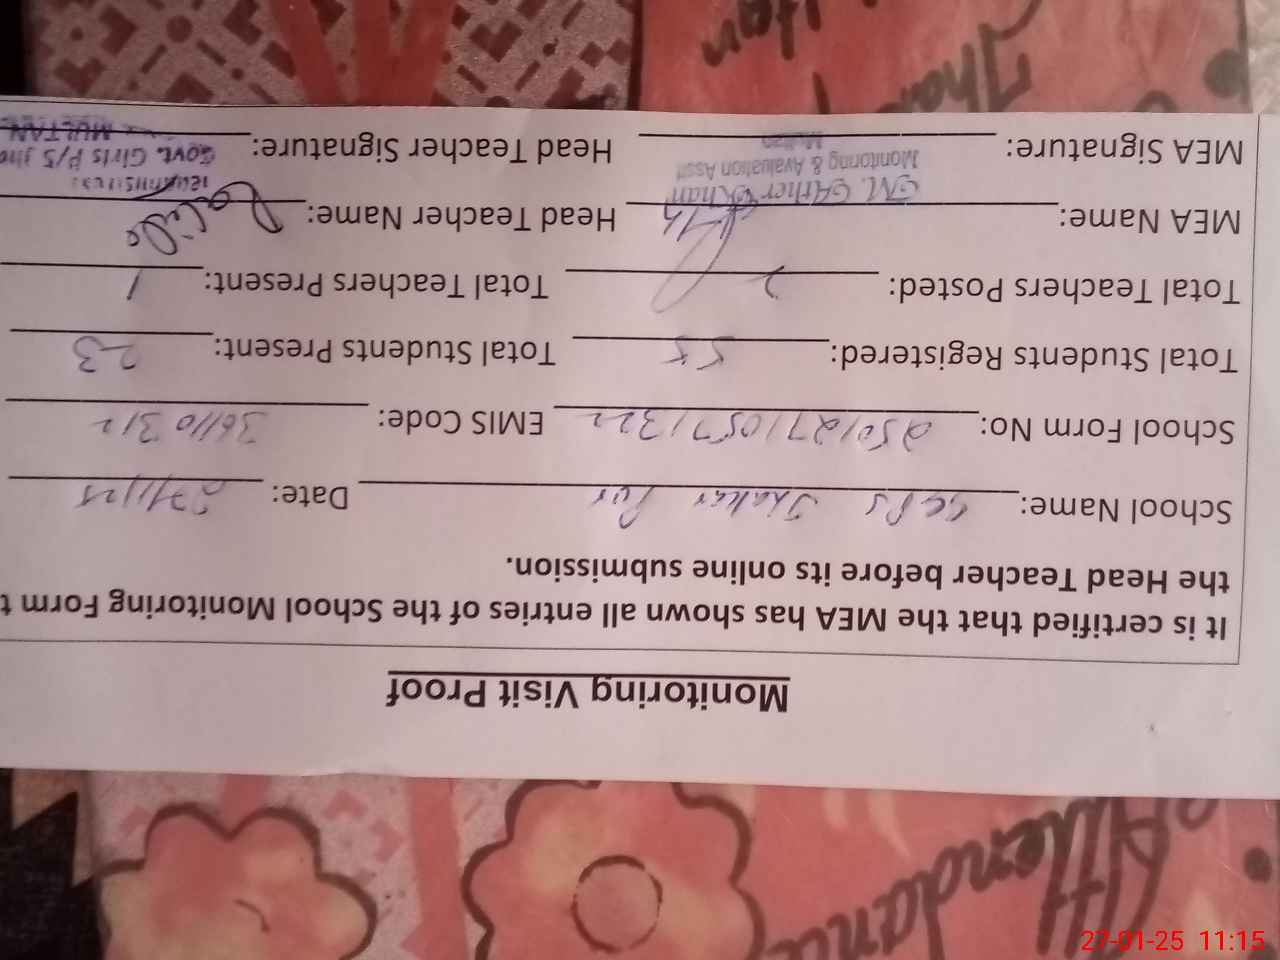 Attendance
Monitoring Visit Proof
It is certified that the MEA has shown all entries of the School Monitoring Form t
the Head Teacher before its online submission.
School Name: GGPS Shakar Pur Date: 27/1/25
School Form No: 25012710571322 EMIS Code: 36110312
Total Students Registered: 55 Total Students Present: 23
Total Teachers Posted: 2 Total Teachers Present: 1
MEA Name: M. Ather Khan Head Teacher Name:
Monitoring & Evaluation Asstt
Multan
MEA Signature: Head Teacher Signature: Govt. Girls P/S
MULTAN
27-01-25 11:15